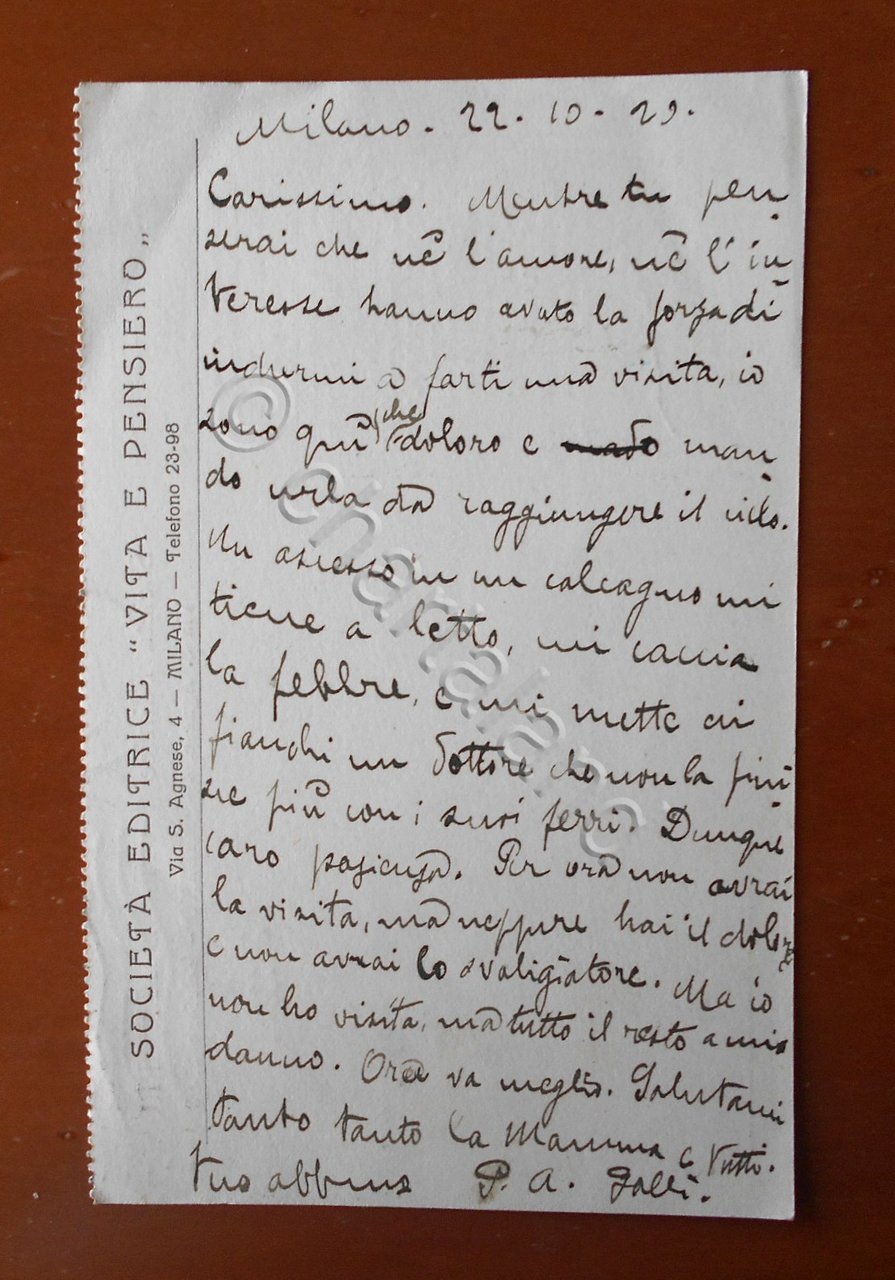 SOCIETÀ EDITRICE "VITA E PENSIERO„
Via S. Agnese, 4 — MILANO — Telefono 23-98
Milano - 22 - 10 - 29.
Carissimo. Mentre tu pen-
serai che nè l'amore, nè l'in-
teresse hanno avuto la forza di
indurmi a farti una visita, io
sono quì che doloro e man-
do urla da raggiungere il cielo.
Un ascesso in un calcagno mi
tiene a letto, mi caccia
la febbre, e mi mette ai
fianchi un dottore che non la fini-
sce più con i suoi ferri. Dunque
caro pazienza. Per ora non avrai
la visita, ma neppure hai il dolore
e non avrai lo svaligiatore. Ma io
non ho visita, ma tutto il resto a mio
danno. Ora va meglio. Salutami
tanto tanto la Mamma e tutti.
tuo P. A.
© chartaland